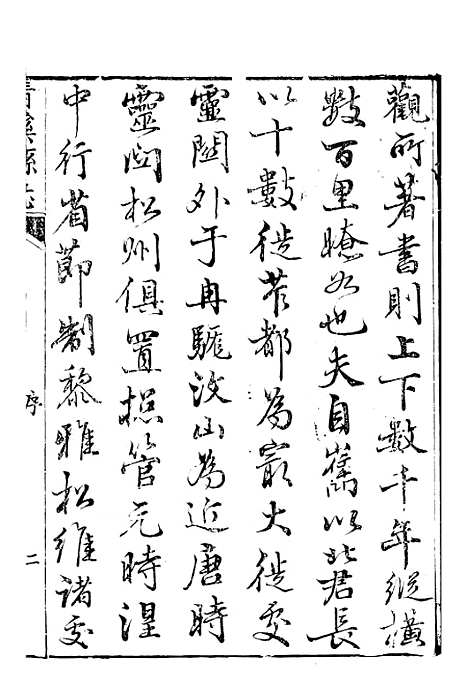 觀所著書則上下數千年縱橫
數百里瞭如也夫自嶲以北君長
以十數徙莋都為最大徙交
靈關外于冉駹汶山為近唐時
靈關松州俱置揔管元時淫
中行省節制黎雅松維諸交
清溪縣志
序
二